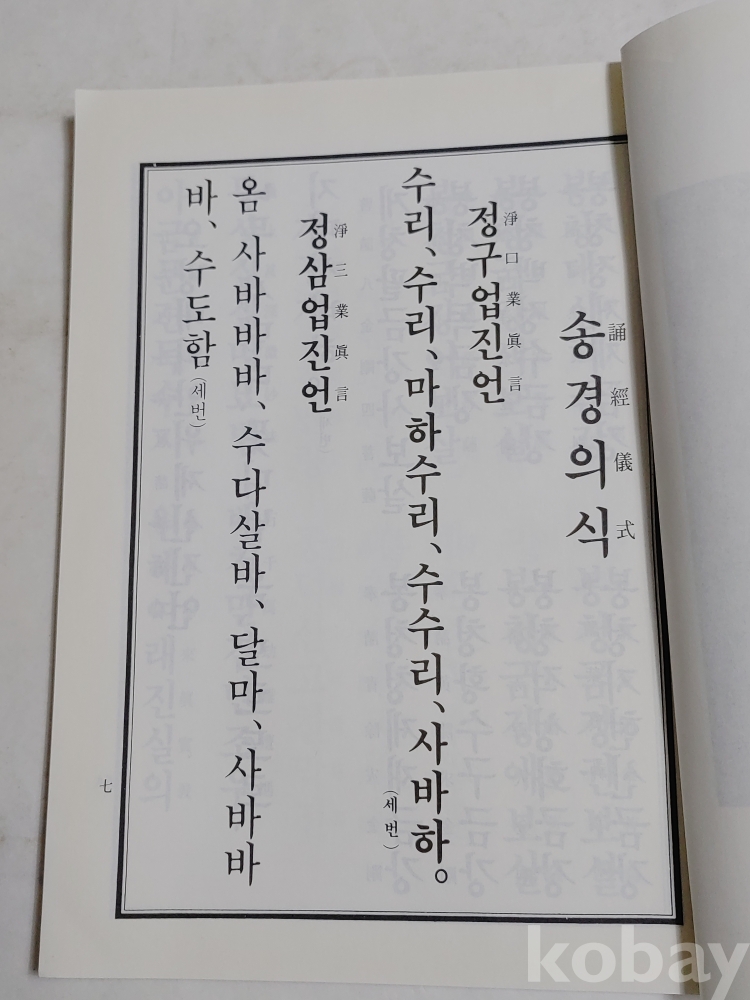 송경의식
誦經儀式
정구업진언
淨口業眞言
수리、수리、마하수리、수수리、사바하。
(세번)
정삼업진언
淨三業眞言
옴 사바바바、수다살바、달마、사바바
바、수도함(세번)
七
kobay